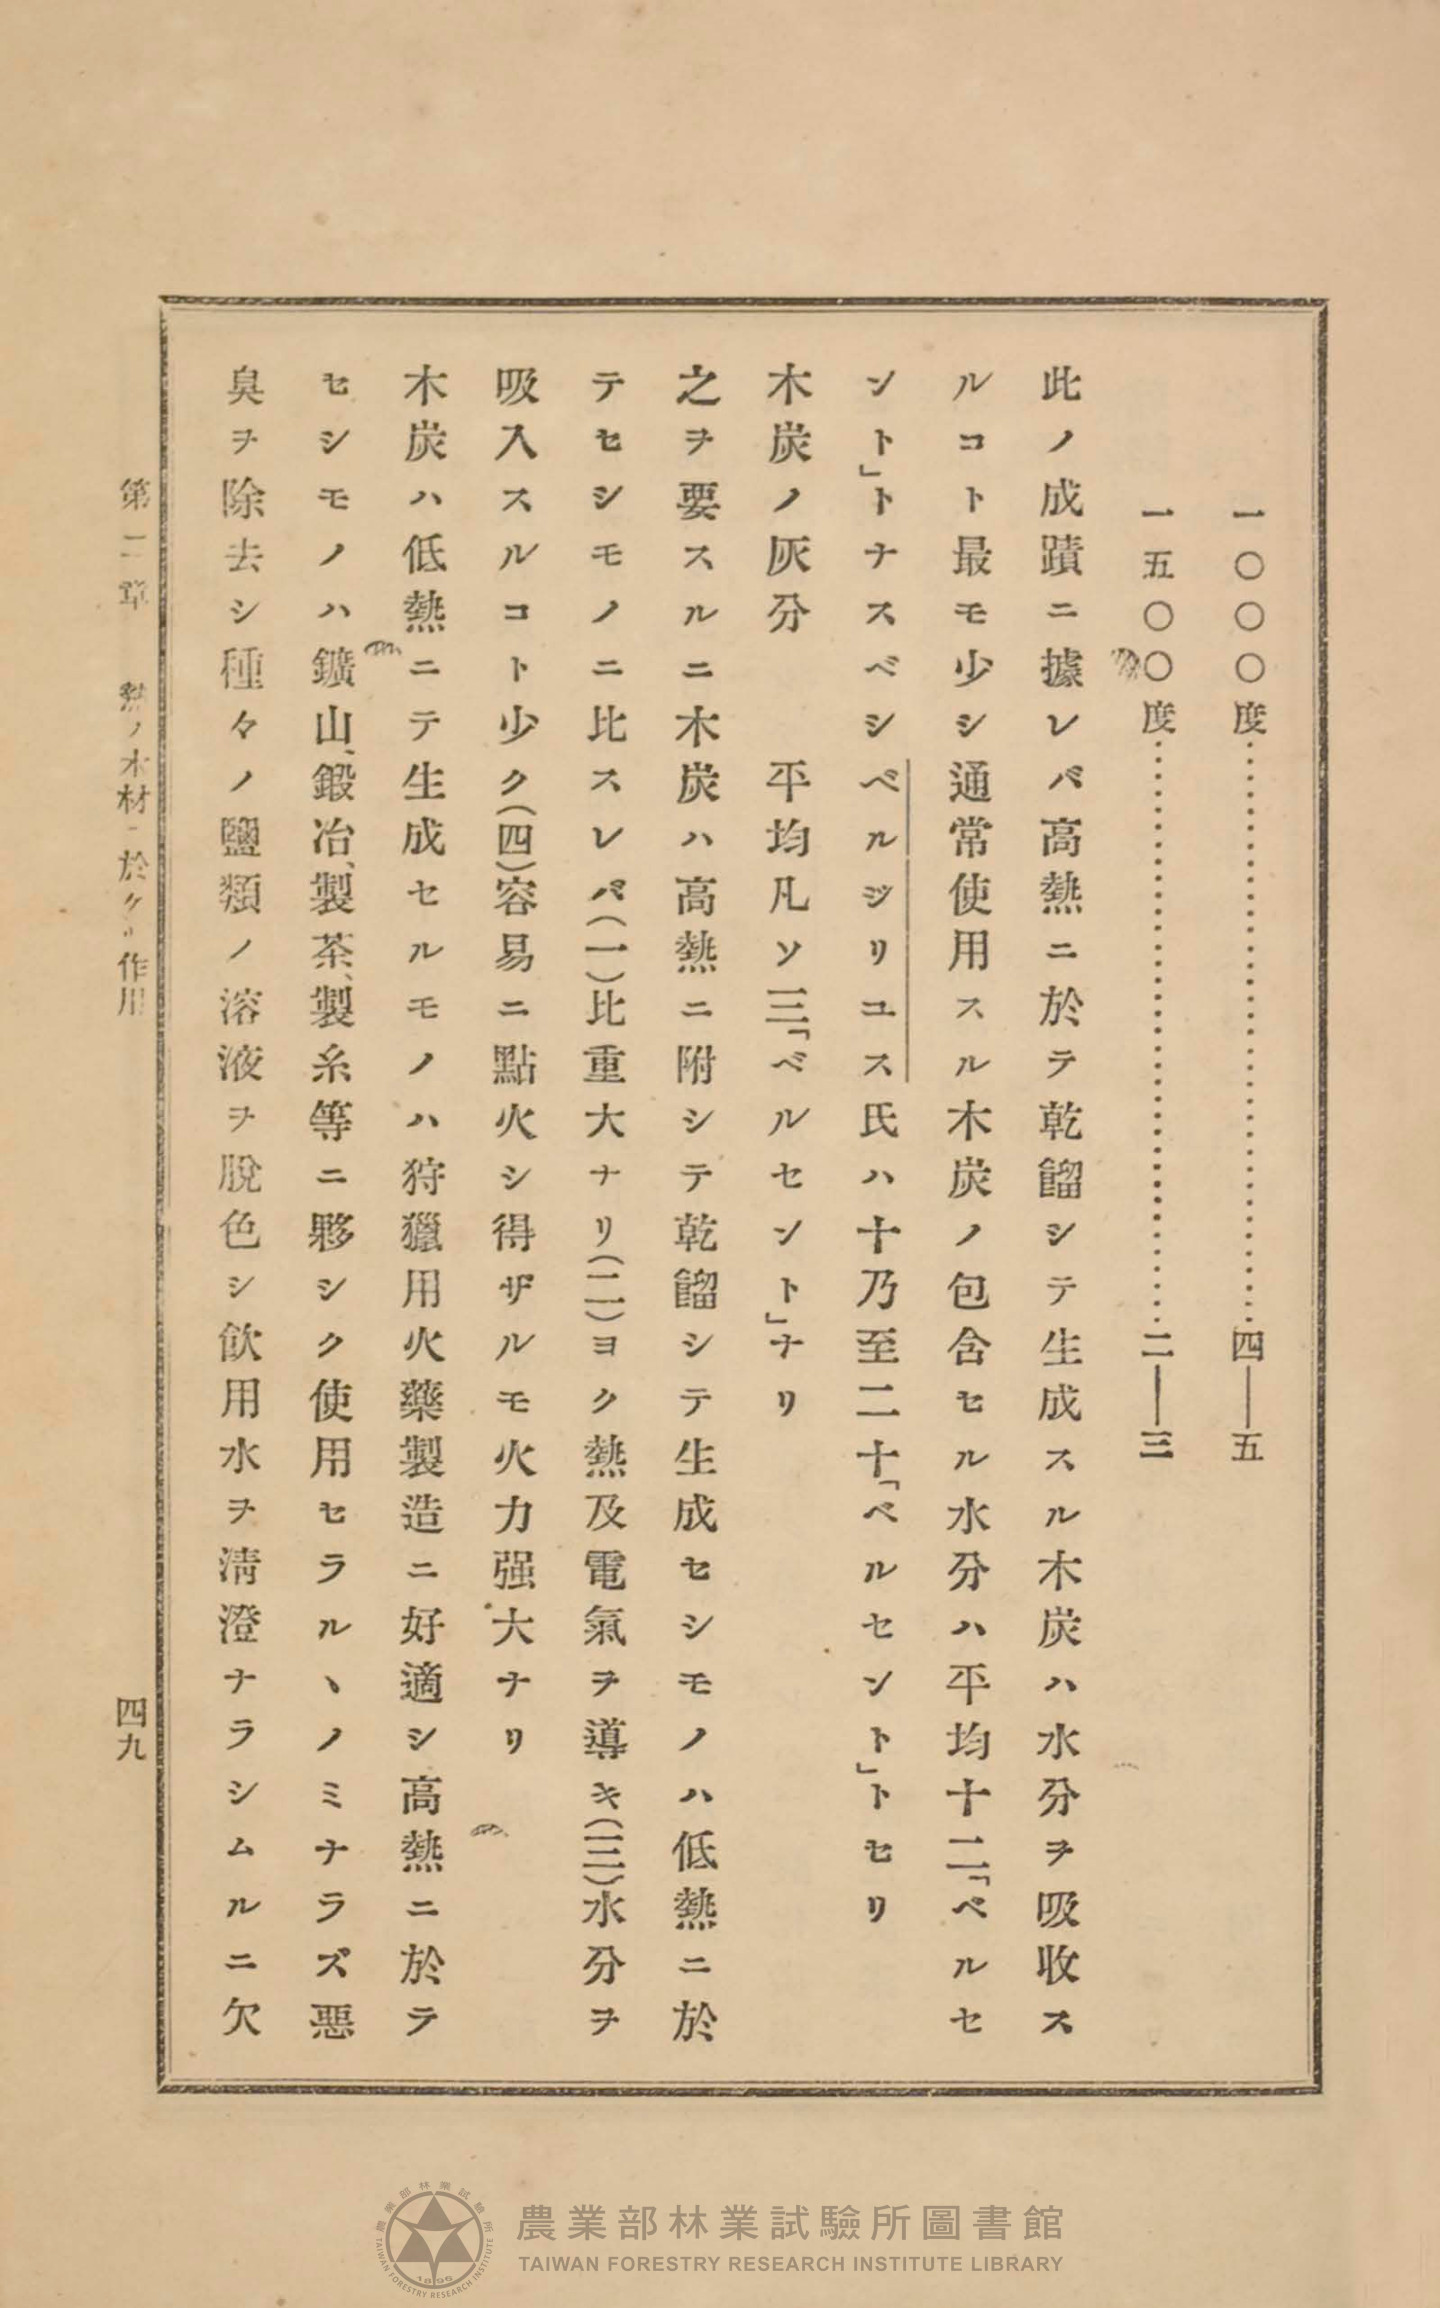 一〇〇〇度……………………四――五
一五〇〇度……………………二――三
此ノ成蹟ニ據レバ高熱ニ於テ乾餾シテ生成スル木炭ハ水分ヲ吸收ス
ルコト最モ少シ通常使用スル木炭ノ包含セル水分ハ平均十二「ペルセ
ント」トナスベシベルジリユス氏ハ十乃至二十「ペルセント」トセリ
木炭ノ灰分 平均凡ソ三「ペルセント」ナリ
之ヲ要スルニ木炭ハ高熱ニ附シテ乾餾シテ生成セシモノハ低熱ニ於
テセシモノニ比スレバ(一)比重大ナリ(二)ヨク熱及電氣ヲ導キ(三)水分ヲ
吸入スルコト少ク(四)容易ニ點火シ得ザルモ火力强大ナリ
木炭ハ低熱ニテ生成セルモノハ狩獵用火藥製造ニ好適シ高熱ニ於テ
セシモノハ鑛山、鍛冶、製茶、製糸等ニ夥シク使用セラルヽノミナラズ惡
臭ヲ除去シ種々ノ鹽類ノ溶液ヲ脫色シ飮用水ヲ淸澄ナラシムルニ欠
第二章 熱ノ木材ニ於ケル作用 四九
農業部林業試驗所圖書館
TAIWAN FORESTRY RESEARCH INSTITUTE LIBRARY
農業部林業試驗所
TAIWAN FORESTRY RESEARCH INSTITUTE
1896